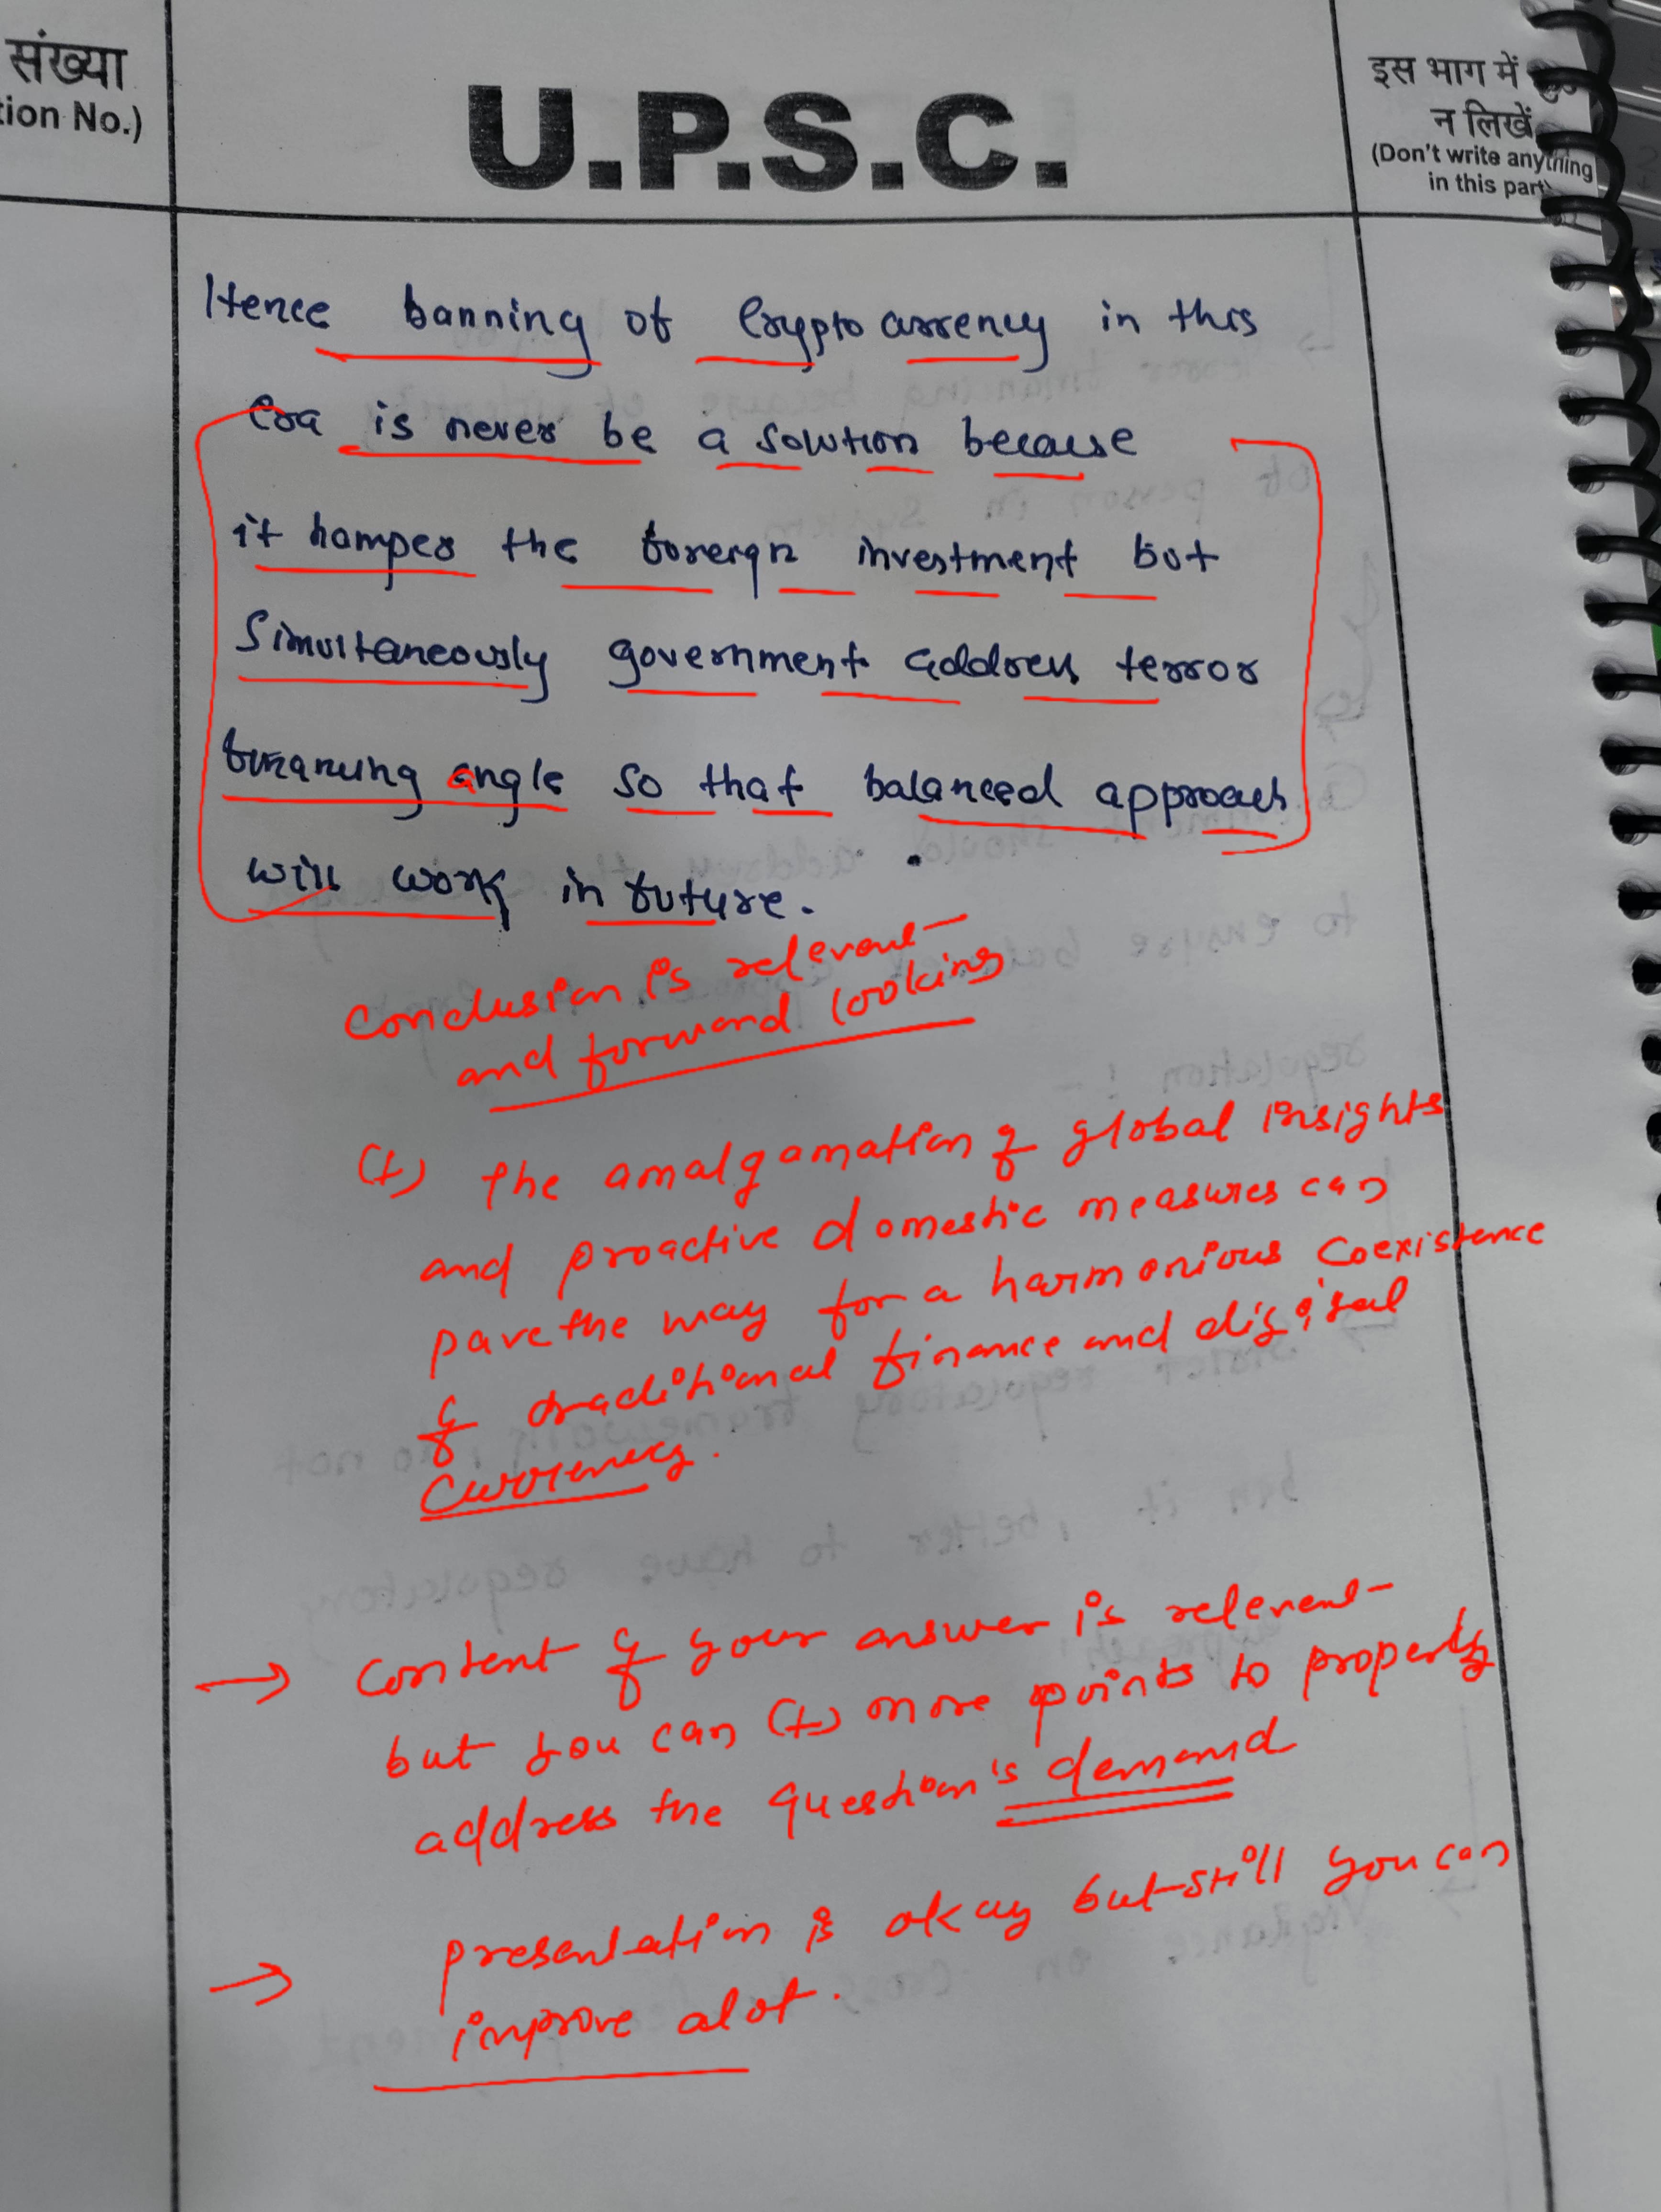 संख्या
tion No.)
U.P.S.C.
इस भाग में कुछ
न लिखें
(Don't write anything
in this part)
Hence banning of Cryptocurrency in this
Era is never be a solution because
it hampes the foreign investment but
Simultaneously government address terror
financing angle so that balanced approach
will work in future.
Conclusion is relevant
and forward looking
(+) the amalgamation of global insights
and proactive domestic measures can
pave the way for a harmonious coexistence
of traditional finance and digital
currency.
→ Content of your answer is relevant
but you can (+) more points to properly
address the question's demand
→ presentation is okay but still you can
improve alot.